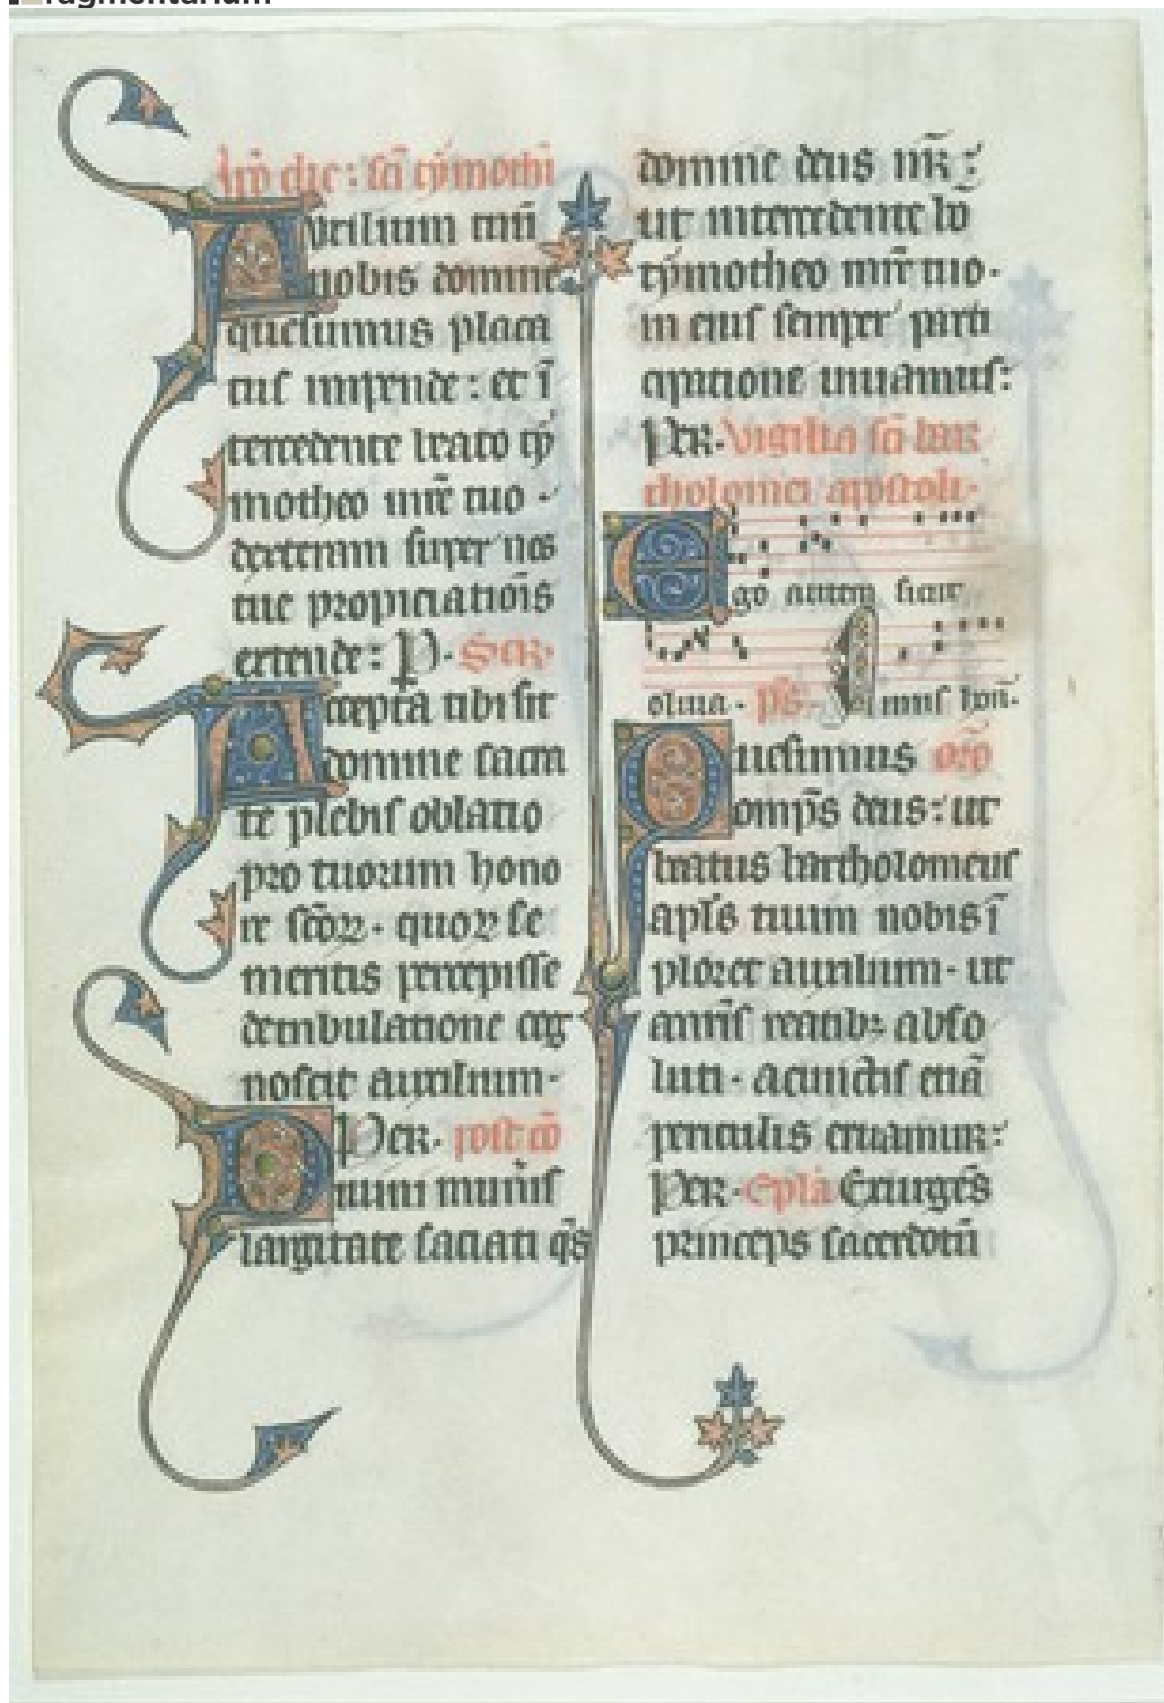 fragmentarium
die: sci tymothei
Auxilium tuum
nobis domine
quesumus placa
tus impende: et ī
tercedente beato ty
motheo mr̄e tuo.
dexteram super nos
tue propiciatiōis
extende: P. Secr̄
Accepta tibi sit
domine sacra
te plebis oblatio
pro tuorum hono
re sc̄oꝝ. quoꝝ se
meritis percepisse
de tribulatione cog
noscit auxilium.
Per. post cō
Divini mun̄is
largitate saciati q̄s
domine deus nr̄:
ut intercedente bo
tymotheo mr̄e tuo.
in eius semper parti
cipatione vivamus:
Per. Vigilia sc̄i bar
tholomei apostoli.
Ego autem sicut
oliva. ps̄. Quid
Quesumus or̄o
omp̄s deus: ut
beatus bartholomeus
apl̄s tuum nobis ī
ploret auxilium. ut
a nr̄is reatibꝫ abso
luti. a cunctis etiā
periculis eruamur:
Per. Epl̄a Exurgēs
princeps sacerdotū